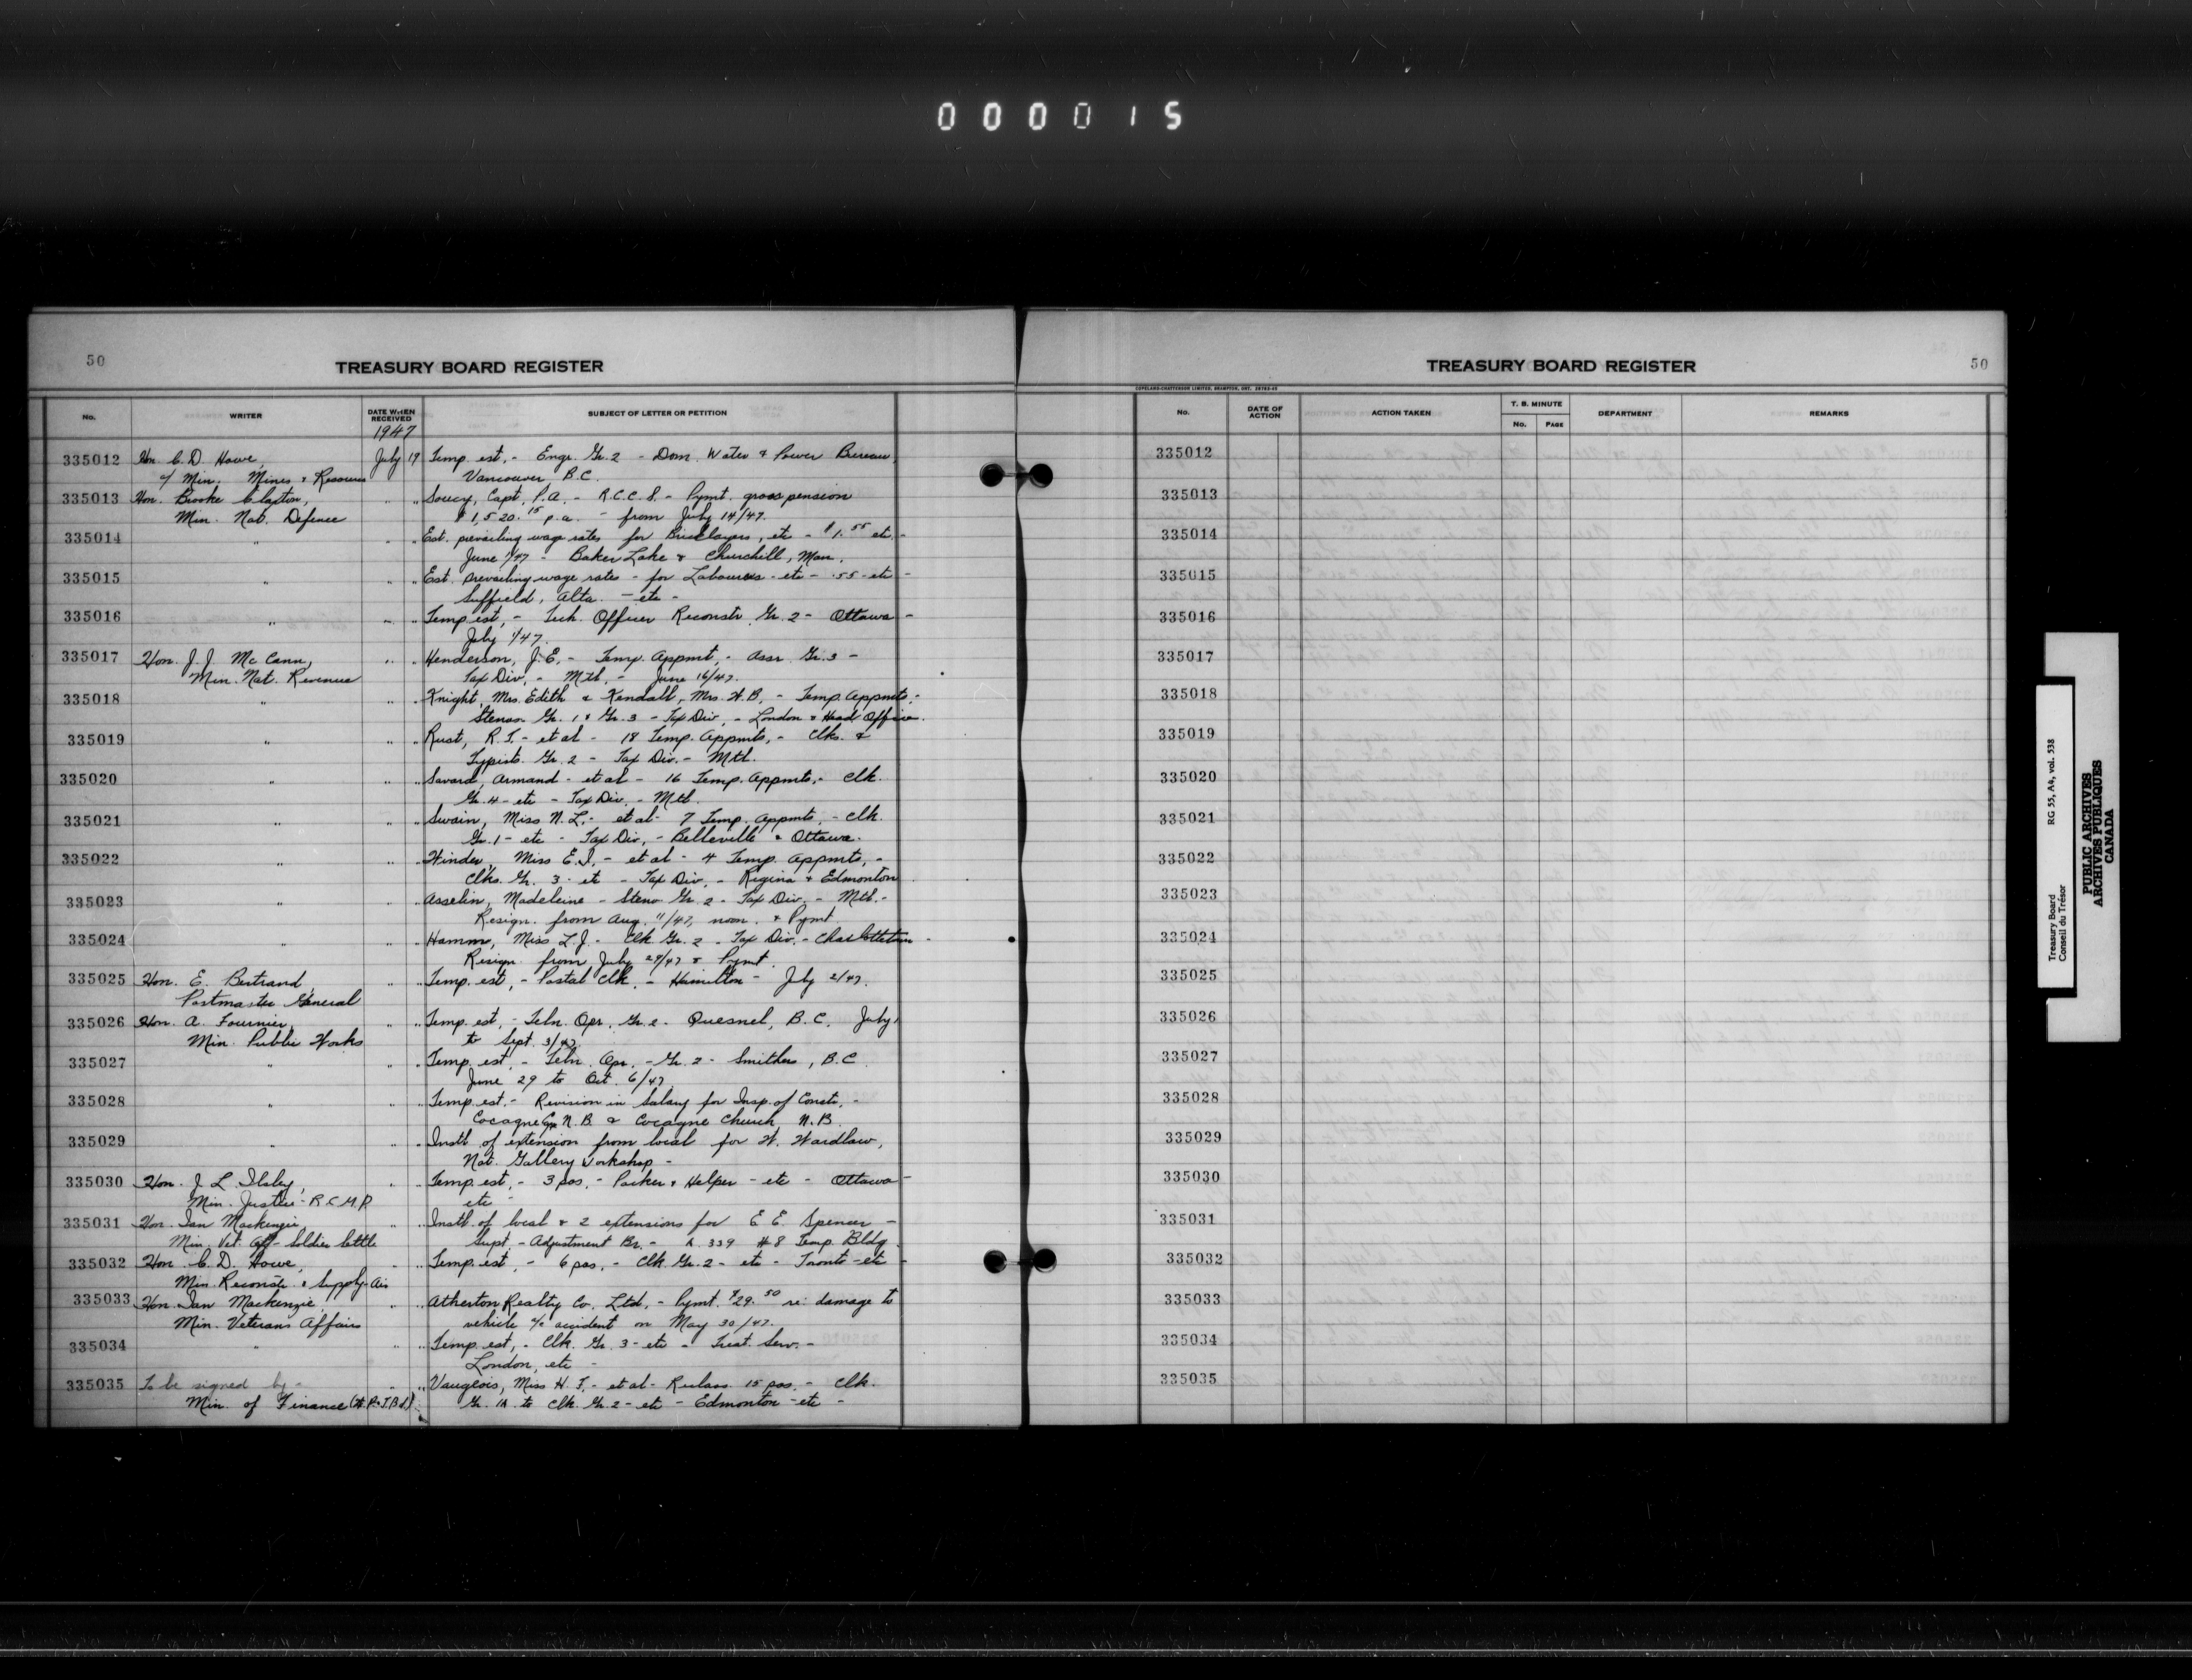 000015
50
TREASURY BOARD REGISTER
No. WRITER DATE WHEN RECEIVED SUBJECT OF LETTER OR PETITION
1947
335012 Hon. C. D. Howe, July 19 Temp. est, - Engr. Gr. 2 - Dom. Water & Power Bureau,
a/ Min. Mines & Resources Vancouver B.C.
335013 Hon. Brooke Claxton, " " Soucy, Capt. P.A. - R.C.C.S. - Pymt. gross pension
Min. Nat. Defence $1,520.15 p.a. - from July 14/47.
335014 " " " Est. prevailing wage rates for Bricklayers, etc - $1.55 etc. -
June 1/47 - Baker Lake & Churchill, Man.
335015 " " " Est. prevailing wage rates - for Labourers - etc - .55 - etc -
Suffield, Alta. - etc -
335016 " " " Temp. est, - Tech. Officer Reconstr. Gr. 2 - Ottawa -
July 1/47.
335017 Hon. J. J. McCann, " " Henderson, J.E. - Temp. Appmt, - Assr. Gr. 3 -
Min. Nat. Revenue Tax Div. - Mtl. - June 16/47.
335018 " " " Knight, Mrs. Edith & Kendall, Mrs. H.B. - Temp. Appmts. -
Stenos Gr. 1 & Gr. 3 - Tax Div. - London & Head Office.
335019 " " " Rust, R.T. - et al - 18 Temp. Appmts, - Clks. &
Typists Gr. 2 - Tax Div. - Mtl.
335020 " " " Savard, Armand - et al - 16 Temp. Appmts. - Clk.
Gr. 4 - etc - Tax Div. - Mtl.
335021 " " " Swain, Miss N. L. - et al - 7 Temp. Appmts. - Clk.
Gr. 1 - etc - Tax Div. - Belleville & Ottawa.
335022 " " " Winder, Miss E.I. - et al - 4 Temp. Appmts, -
Clks. Gr. 3 - etc - Tax Div. - Regina & Edmonton
335023 " " " Asselin, Madeleine - Steno Gr. 2 - Tax Div. - Mtl. -
Resign. from Aug. 11/47, noon. & Pymt.
335024 " " " Hamm, Miss L.J. - Clk. Gr. 2 - Tax Div. - Charlottetown -
Resign. from July 28/47 & Pymt.
335025 Hon. E. Bertrand, " " Temp. est, - Postal Clk. - Hamilton - July 2/47.
Postmaster General
335026 Hon. A. Fournier, " " Temp. est, - Teln. Opr. Gr. 2 - Quesnel, B.C. July 1
Min. Public Works to Sept. 3/47.
335027 " " " Temp. est, - Teln. Opr. - Gr. 2 - Smithers, B.C.
June 29 to Oct. 6/47.
335028 " " " Temp. est. - Revision in Salary for Insp. of Constr. -
Cocagne N.B. & Cocagne Church, N.B.
335029 " " " Instl. of extension from local for W. Wardlaw,
Nat. Gallery Workshop -
335030 Hon. J. L. Ilsley, " " Temp. est, - 3 pos. - Packer & Helper - etc - Ottawa -
Min. Justice - R.C.M.P. etc -
335031 Hon. Ian Mackenzie, " " Instl. of local & 2 extensions for E. E. Spencer -
Min. Vet. Aff - Soldier Settle Supt. - Adjustment Br. - R. 339 #8 Temp. Bldg.
335032 Hon. C. D. Howe, " " Temp. est, - 6 pos. - Clk. Gr. 2 - etc - Toronto - etc -
Min. Reconstr. & Supply - Air
335033 Hon. Ian Mackenzie, " " Atherton Realty Co. Ltd. - Pymt. $29.50 re: damage to
Min. Veterans Affairs vehicle a/c accident on May 30/47.
335034 " " " Temp. est, - Clk. Gr. 3 - etc - Treat. Serv. -
London, etc -
335035 To be signed by - " " Vaugeois, Miss H. T. - et al - Reclass 15 pos. - Clk.
Min. of Finance (W.P.&T.Bd.) Gr. 1A to Clk. Gr. 2 - etc - Edmonton - etc -
TREASURY BOARD REGISTER
50
COPELAND-CHATTERSON LIMITED, BRAMPTON, ONT.
No. DATE OF ACTION ACTION TAKEN T. B. MINUTE No. PAGE DEPARTMENT REMARKS
335012
335013
335014
335015
335016
335017
335018
335019
335020
335021
335022
335023
335024
335025
335026
335027
335028
335029
335030
335031
335032
335033
335034
335035
Treasury Board RG 55, A4, vol. 538
Conseil du Trésor
PUBLIC ARCHIVES
ARCHIVES PUBLIQUES
CANADA